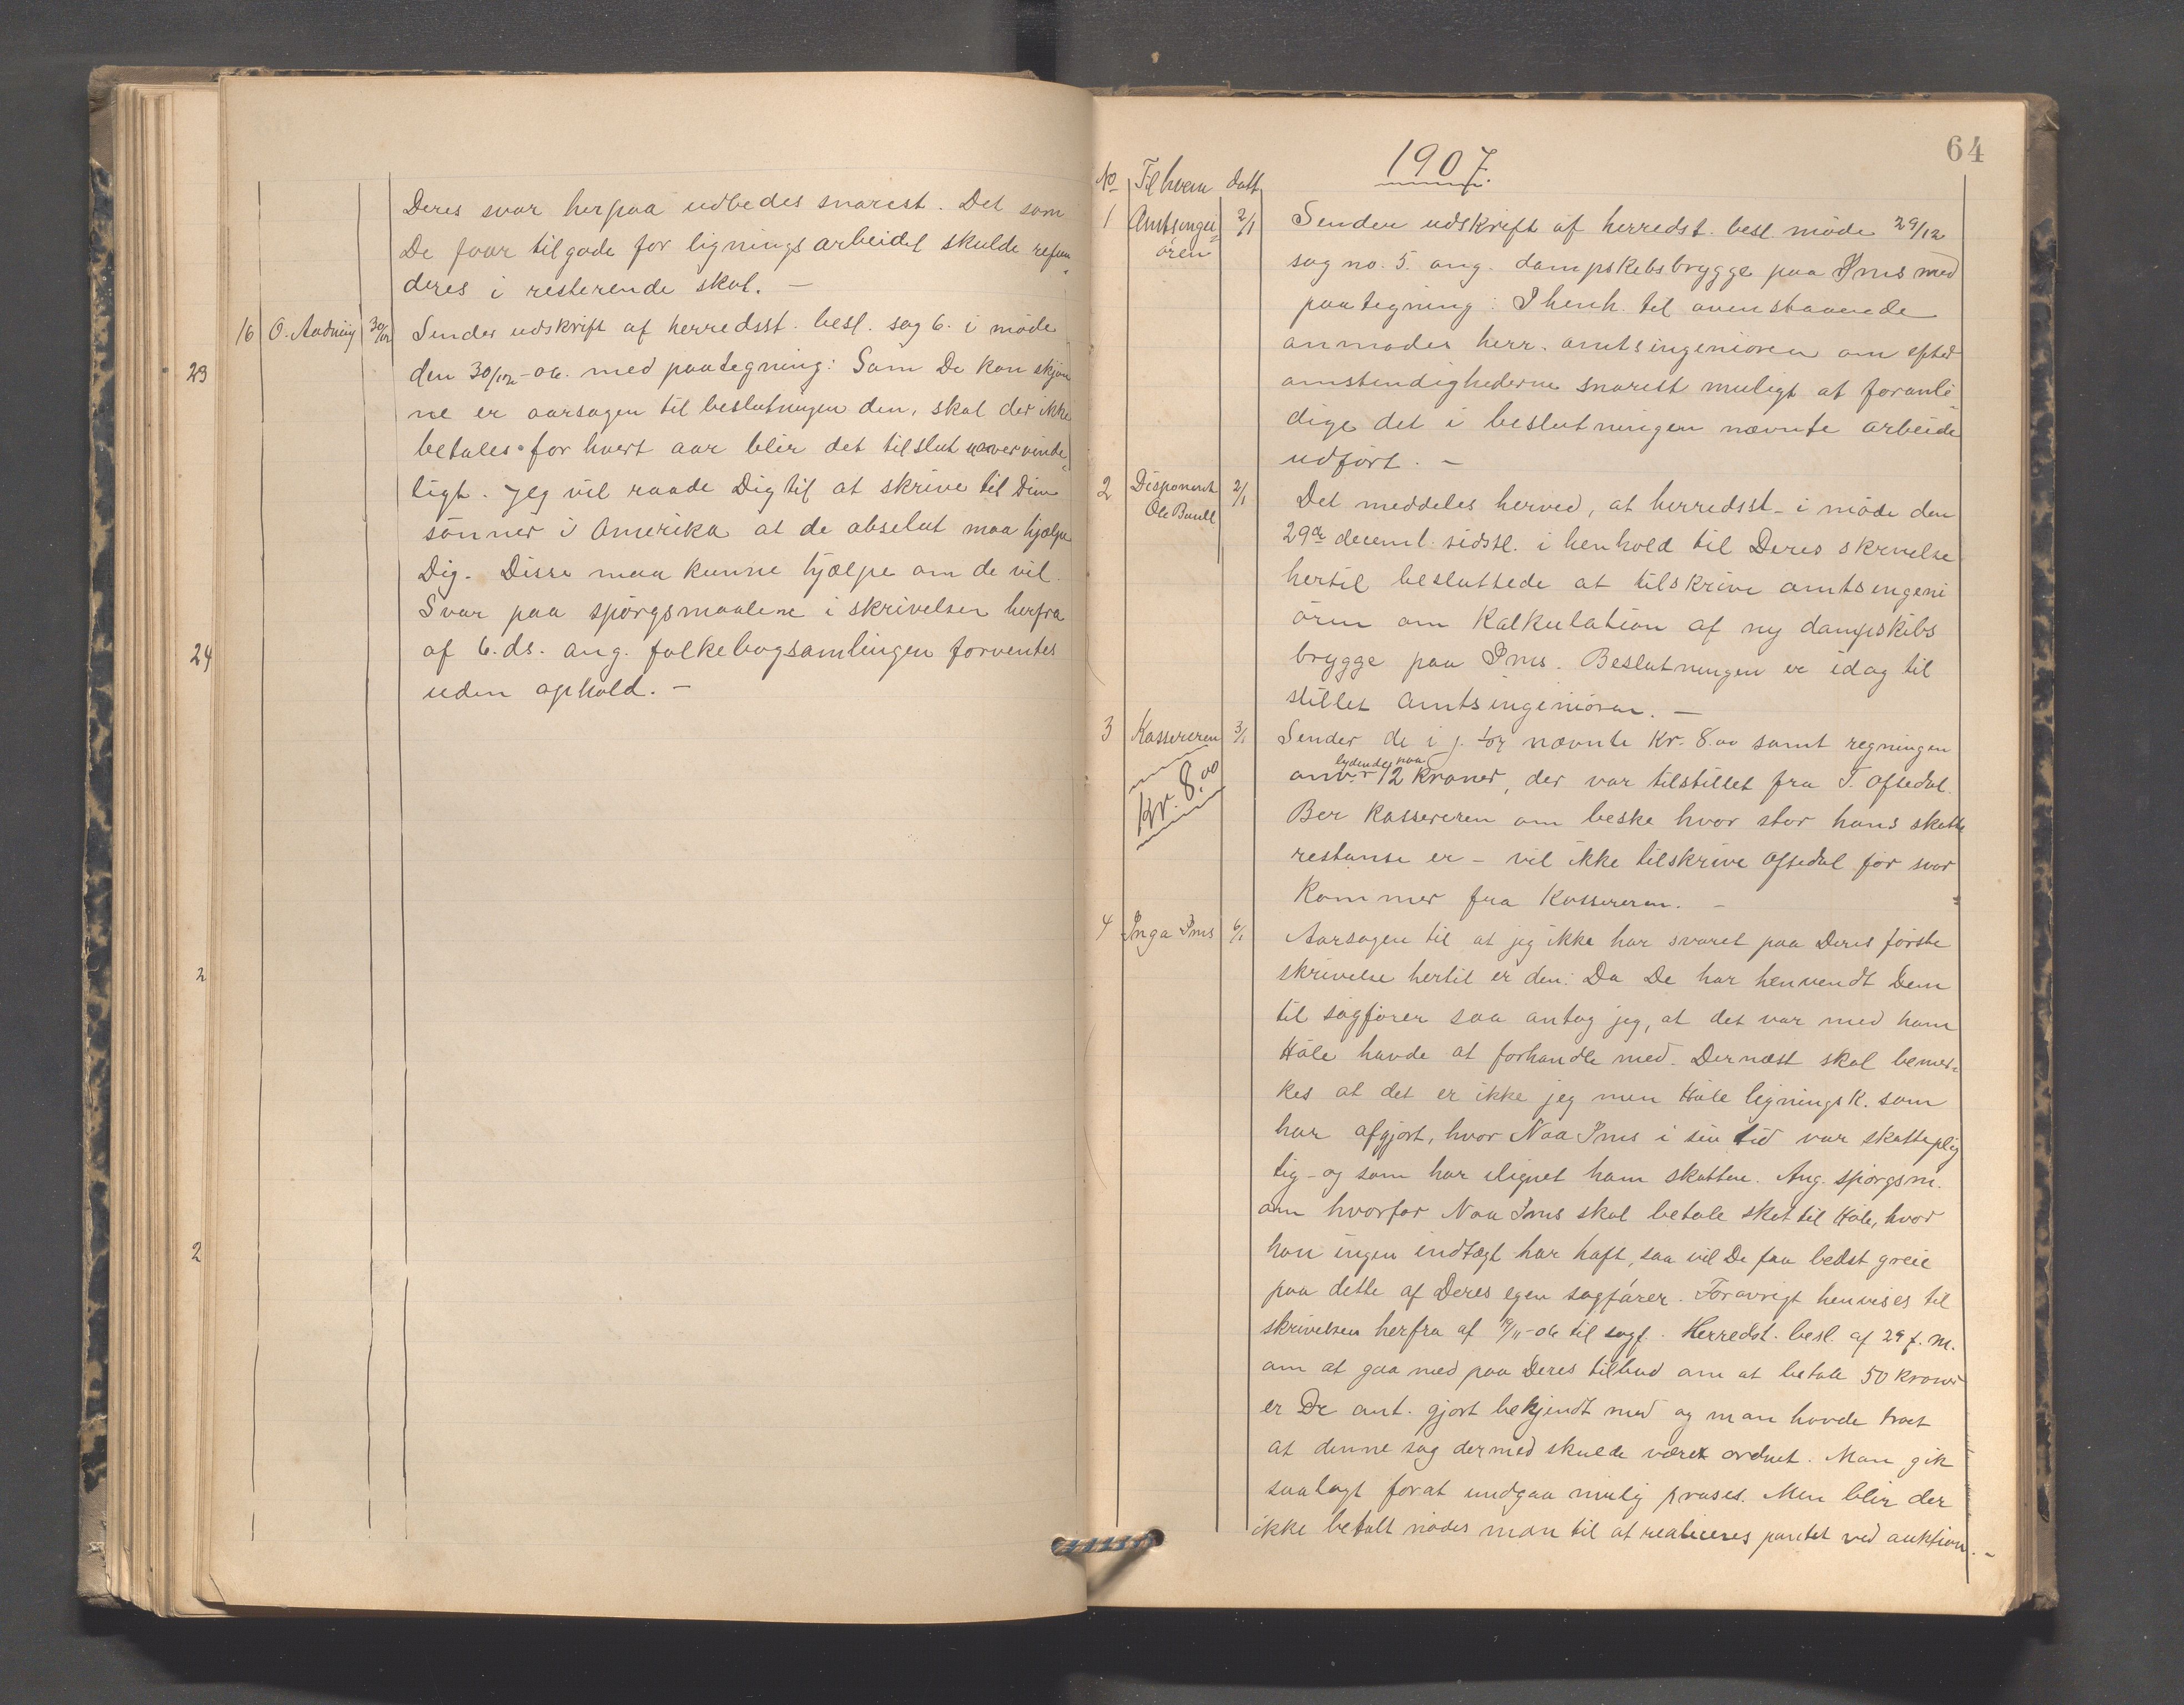 Deres svar herpaa udbedes snarest. Det som
De faar tilgode for ligningsarbeidet skulde refun
deres i resterende skat. —
16 O. Audning 30/12 Sender udskrift af herredsst. besl. sag 6. i møde
den 30/12-06. med paategning: Som De kan skjøn
ne er aarsagen til beslutningen den, skal der ikke
betales for hvert aar blir det tilslut uovervinde
ligt. Jeg vil raade Dig til at skrive til Dine
sønner i Amerika at de absolut maa hjælpe
Dig. Disse maa kunne hjælpe om de vil.
Svar paa spørgsmaalene i skrivelsen herfra
af 6. ds. ang. folkebogsamlingen forventes
uden ophold. —
23
24
2
2
64
1907.
No Til hvem datt
1 Amtsingeni
øren 2/1 Sender udskrift af herredst. besl. møde 29/12
sag no. 5. ang. dampskibsbrygge paa Ims med
paategning: I henh. til ovenstaaende
anmodes herr. amtsingeniøren om efter
omstendighederne snarest muligt at foranle
dige det i beslutningen nævnte arbeide
udført. —
2 Disponent
Ole Buull 2/1 Det meddeles herved, at herredsst. i møde den
29de decemb. sidstl. i henhold til Deres skrivelse
hertil besluttede at tilskrive amtsingeni
øren om Kalkulation af ny dampskibs
brygge paa Ims. Beslutningen er idag til
stillet Amtsingeniøren. —
3 Kassereren 3/1 Sender de i j. nævnte Kr. 8.00 samt regningen
Kr. 8.00
lydende paa
anv. 12 Kroner, der var tilstillet fra T. Oftedal.
Ber Kassereren om beske hvor stor hans skatte
restanse er — vil ikke tilskrive Oftedal før svar
Kommer fra Kassereren. —
4 Inga Ims 6/1 Aarsagen til at jeg ikke har svaret paa Deres første
skrivelse hertil er den: Da De har henvendt Dem
til sagfører saa antog jeg, at det var med ham
Høle havde at forhandle med. Dernæst skal bemer=
kes at det er ikke jeg men Høle ligningsk. som
har afgjort, hvor Naa Ims i sin tid var skatteplig
tig — og som har ilignet ham skatten. Ang. spørgsm.
om hvorfor Naa Ims skal betale skat til Høle, hvor
han ingen indtægt har haft, saa vil De faa bedst greie
paa dette af Deres egen sagfører. Forøvrigt henvises til
skrivelsen herfra af 19/11-06 til sagf. Herredst. besl. af 29 f. m.
om at gaa med paa Deres tilbud om at betale 50 kroner
er De ant. gjort bekjendt med og man havde troet
at denne sag dermed skulde været ordnet. Man gik
saalagt forat undgaa mulig proses. Men blir der
ikke betalt nødes man til at realiceres pantet ved auktion. —